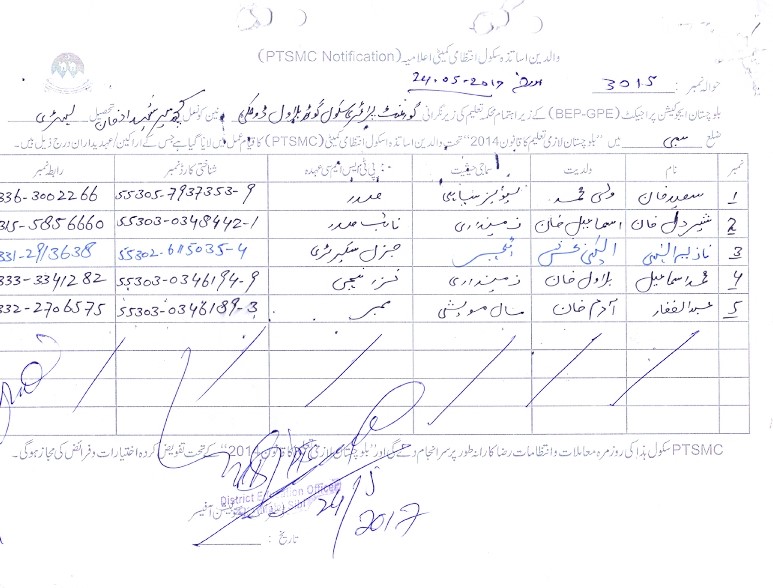 والدین اساتذہ سکول انتظامی کمیٹی اعلامیہ (PTSMC Notification)
حوالہ نمبر: 3015 مورخہ 24-05-2017
بلوچستان ایجوکیشن پراجیکٹ (BEP-GPE) کے زیر اہتمام محکمہ تعلیم کی زیر نگرانی گورنمنٹ پرائمری سکول گوٹھ بلاول ڈومکی یونین کونسل تحصیل لہڑی
ضلع سبی میں "بلوچستان لازمی تعلیم کا قانون 2014" تحت والدین اساتذہ سکول انتظامی کمیٹی (PTSMC) کا قیام عمل میں لایا گیا ہے جس کے اراکین/عہدیداران درج ذیل ہیں۔
نمبر نام ولدیت سماجی حیثیت پی ٹی ایس ایم سی عہدہ شناختی کارڈ نمبر رابطہ نمبر
1 سعید خان ولی محمد صدر 55305-7937353-9 336-3002266
2 شیر دل خان اسماعیل خان زمینداری نائب صدر 55303-0348442-1 315-5856660
3 جنرل سیکریٹری 55302-6115035-4 331-2913638
4 محمد اسماعیل بلاول خان زمینداری خزانچی 55303-0346194-9 333-3341282
5 عبدالغفار آدم خان مال مویشی ممبر 55303-0346189-3 332-2706575
PTSMC سکول ہذا کی روزمرہ معاملات و انتظامات رضا کارانہ طور پر سرانجام دے گی اور "بلوچستان لازمی تعلیم کا قانون 2014" کے تحت تفویض کردہ اختیارات و فرائض کی مجاز ہوگی۔
District Education Officer
Sibi
24/5/2017
تاریخ :